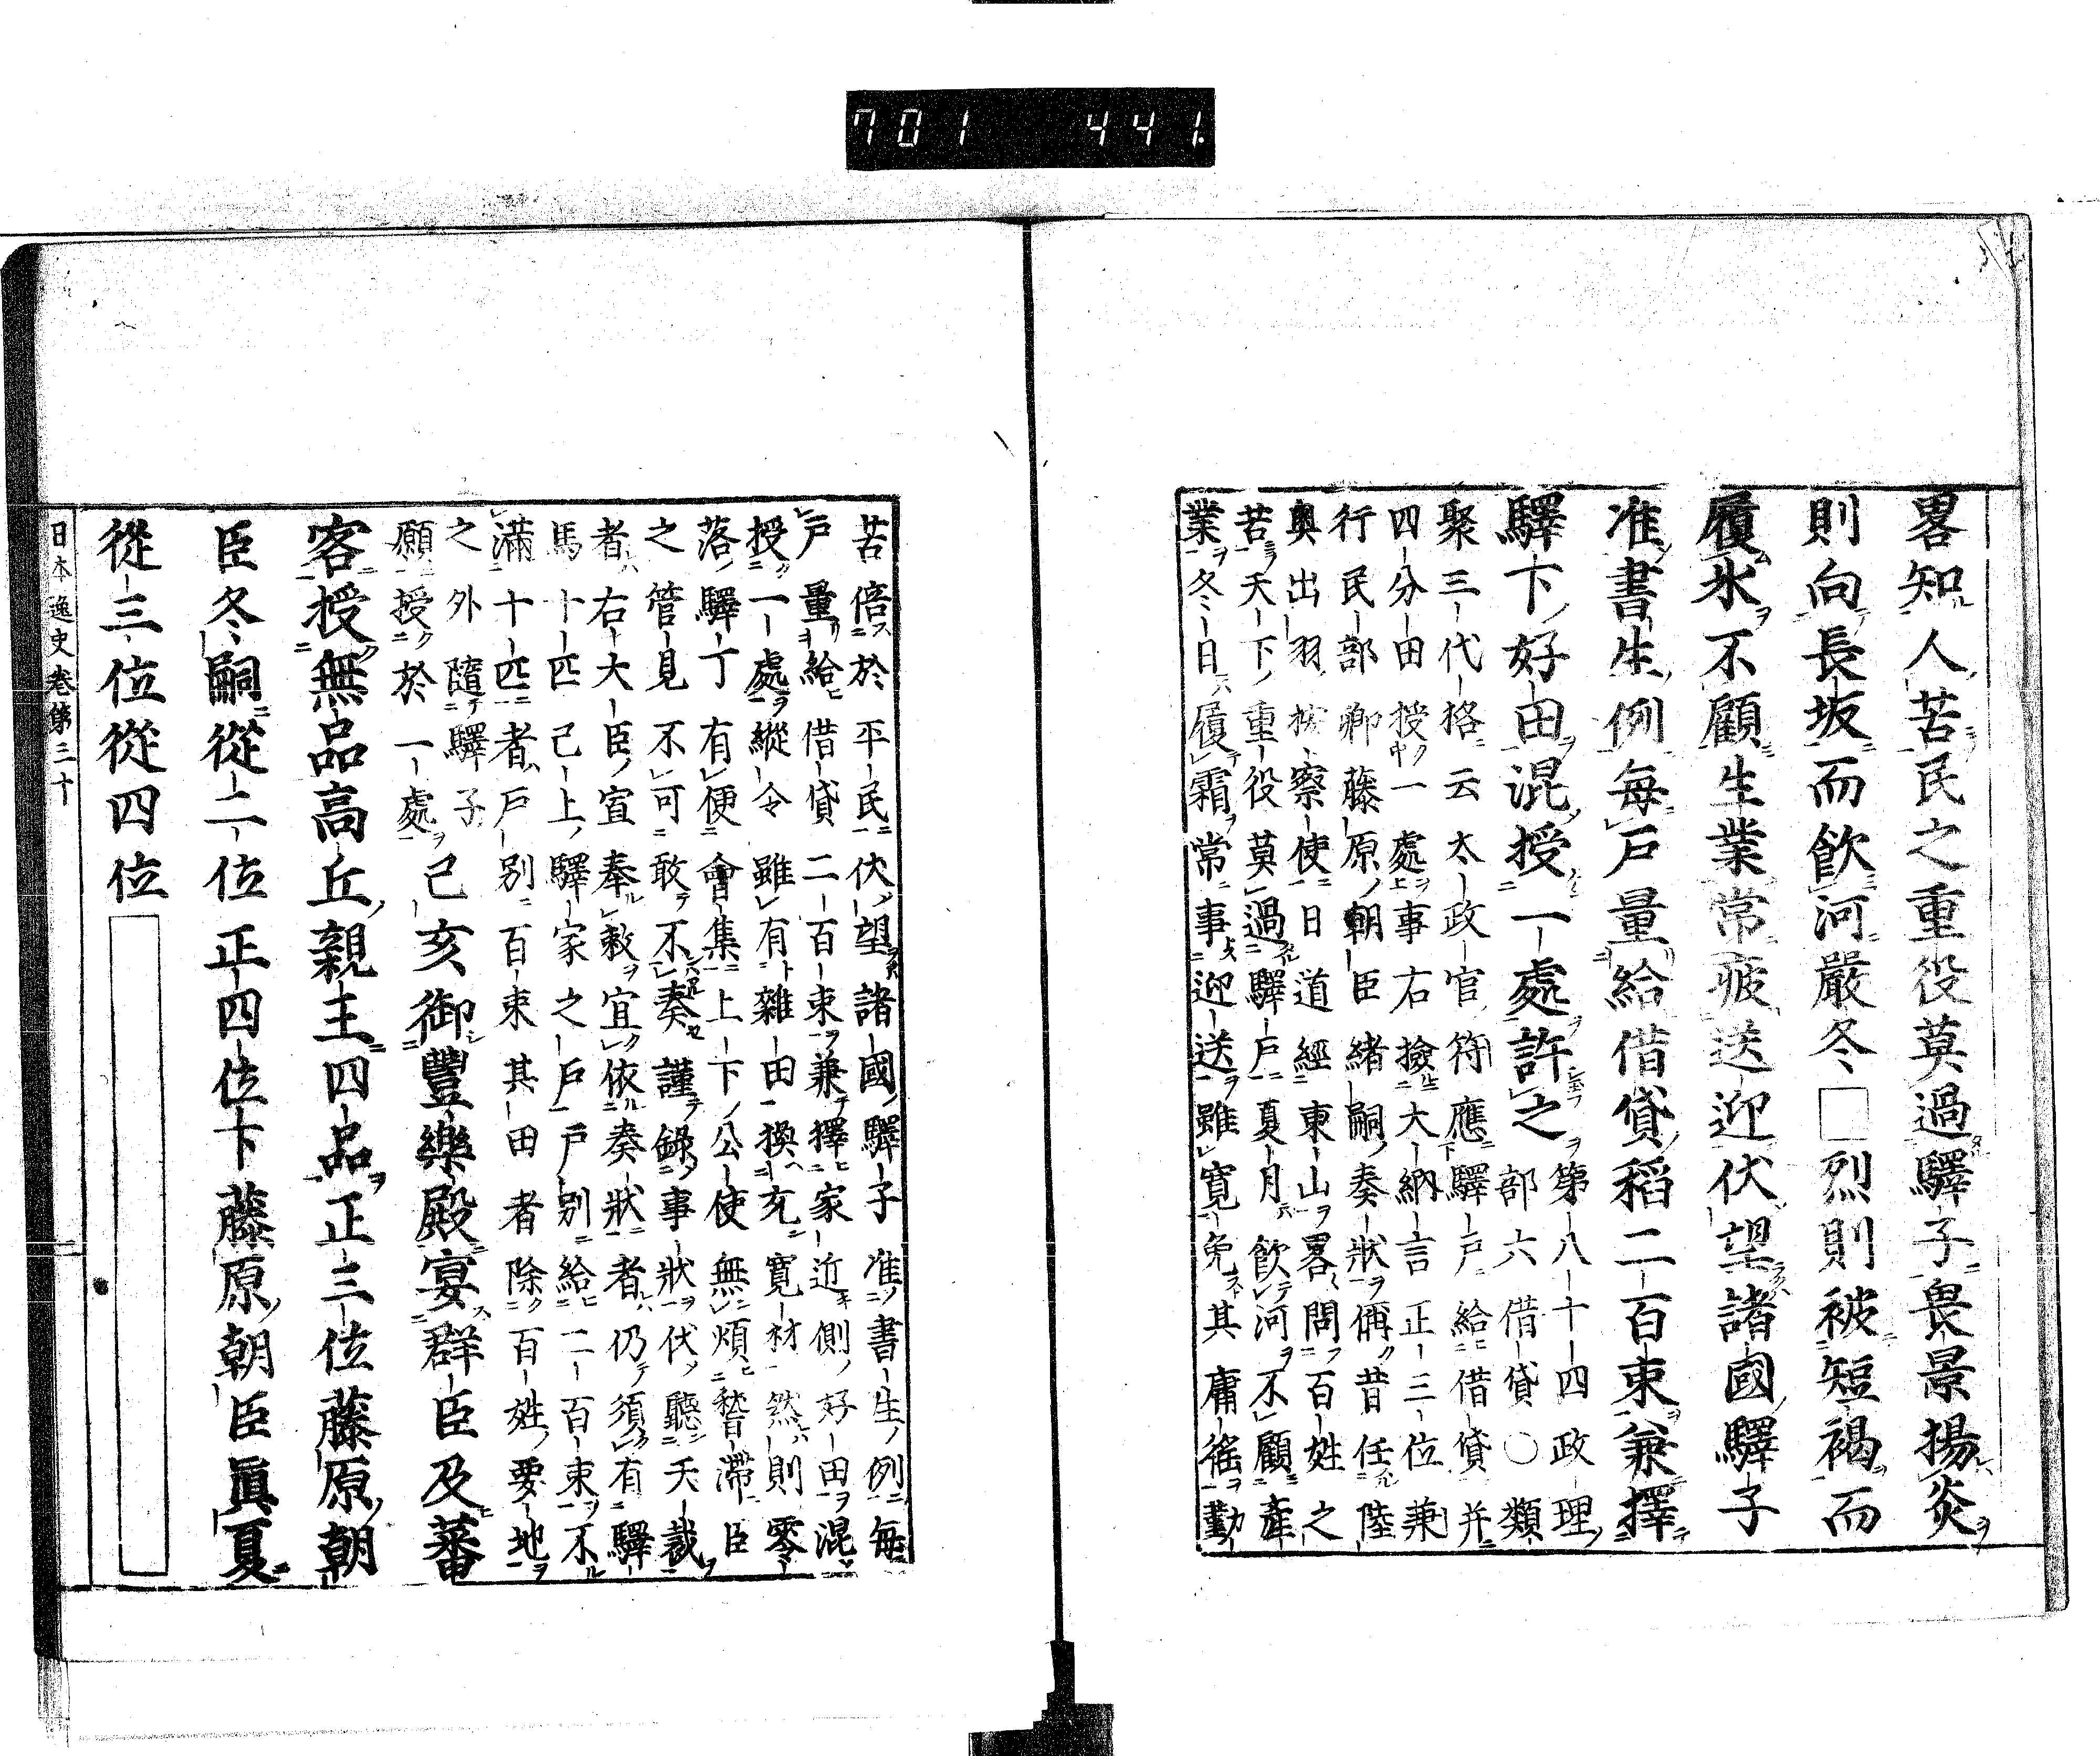 701 441
畧知人苦民之重役莫過驛子畏景揚炎
則向長坂而飲河嚴冬□烈則被短褐而
履氷不顧生業常疲送迎伏望諸國驛子
准書生例毎戸量給借貸稻二百束兼擇
驛下好田混授一處許之
第八十四政理
部六借貸○類
聚三代格云太政官符應驛戸給借貸并
四分田授一處事右撿大納言正三位兼
行民部卿藤原朝臣緒嗣奏狀偁昔任陸
奥出羽按察使日道經東山畧問百姓之
苦天下重役莫過驛戸夏月飲河不顧產
業冬日履霜常事迎送雖寛免其庸徭勤
苦倍於平民伏望諸國驛子准書生例毎
戸量給借貸二百束兼擇家近側好田混
授一處縱令雖有雜田換充寛材然則零
落驛丁有便會集上下公使無煩稽滯臣
之管見不可敢不奏謹錄事狀伏聽天裁
者右大臣宣奉敕宜依奏狀者仍須有驛
馬十匹已上驛家之戸戸別給二百束不
滿十匹者戸別百束其田者除百姓要地
之外隨驛子
願授於一處
己亥御豐樂殿宴群臣及蕃
客授無品高丘親王四品正三位藤原朝
臣冬嗣從二位正四位下藤原朝臣眞夏
從三位從四位
日本逸史卷第三十